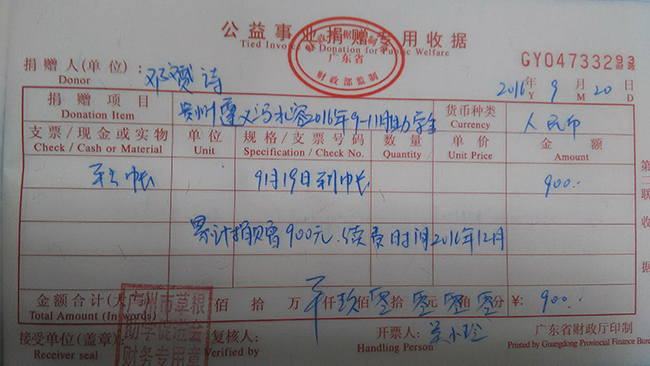 公益事业捐赠专用收据
Tied Invoice Donation for Public Welfare
广东省
财政部监制
GY04733293
捐赠人(单位): 邓贤诗 2016年9月20日
Donor Y M D
捐赠项目 贵州遵义冯水容2016年9-11月助学金 货币种类 人民币
Donation Item Currency
支票/现金或实物 单位 规格/支票号码 数量 单价 金额
Check / Cash or Material Unit Specification / Check No. Quantity Unit Price Amount
到帐 9月19日到帐 900.
累计捐赠900元,续费时间2016年12月
第二联 收据
金额合计(大写) 佰拾万仟玖佰零拾零元零角零分 ¥: 900.
Total Amount (In words)
广州市草根
助学促进会
财务专用章
接受单位(盖章): 复核人: 开票人: 吴小玲 广东省财政厅印制
Receiver seal Verified by Handling Person Printed by Guangdong Provincial Finance Bureau